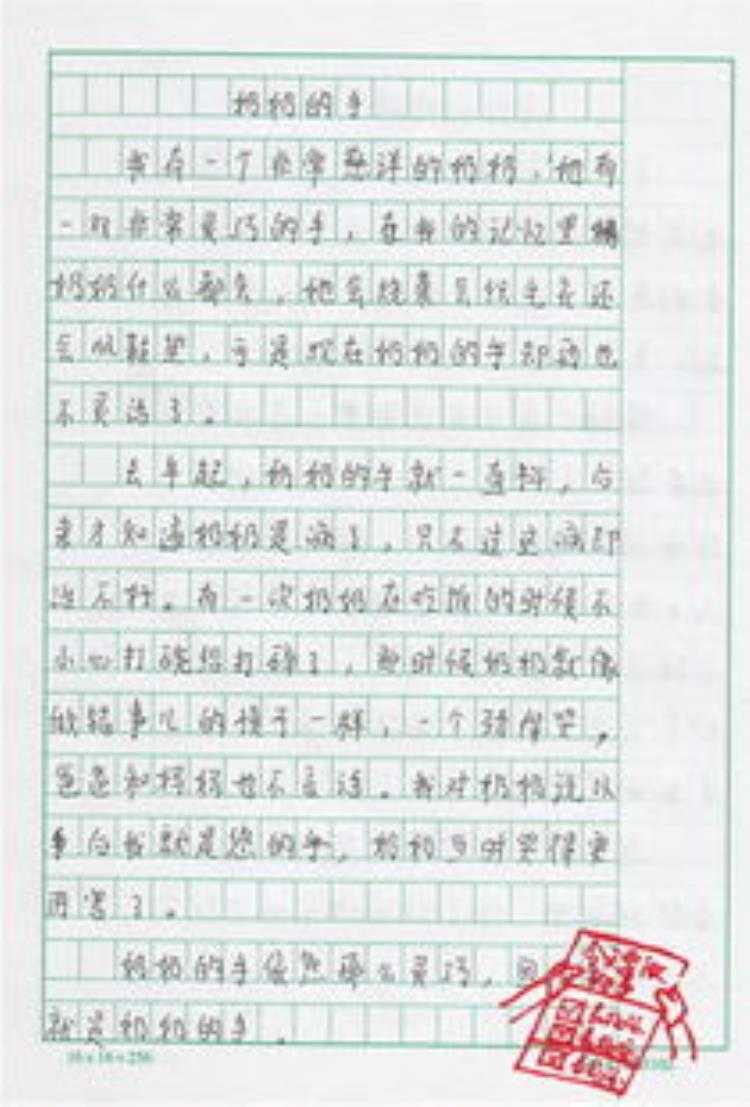 奶奶的手
我有一个非常慈祥的奶奶，她有
一双非常灵巧的手，在我的记忆里
奶奶什么都会，她会烧菜 织毛衣还
会做鞋垫，于是现在奶奶的手却动也
不灵活了。
去年起，奶奶的手就一直抖，后
来才知道奶奶是病了，只不过这病却
治不好。有一次奶奶在吃饭的时候不
小心打碗给打碎了，那时候奶奶就像
做错事儿的孩子一样，一个劲
爸爸和妈妈也不言语。我对奶奶说从
今后我就是您的手，奶奶当时哭得更
厉害了。
奶奶的手依然那么灵巧，
就是奶奶的手。
16 x 16 = 256